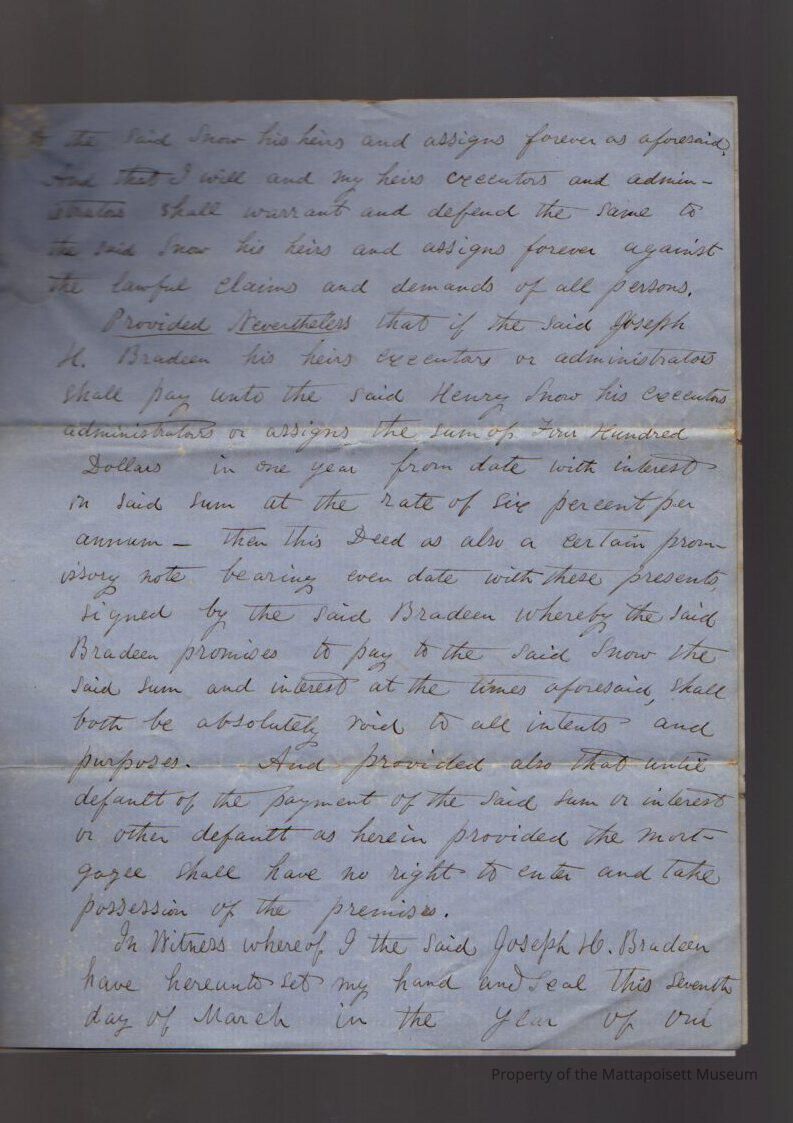 to the said Snow his heirs and assigns forever as aforesaid.
And that I will and my heirs executors and admin-
istrators shall warrant and defend the same to
the said Snow his heirs and assigns forever against
the lawful claims and demands of all persons.
Provided Nevertheless that if the said Joseph
H. Bradeen his heirs executors or administrators
shall pay unto the said Henry Snow his executors
administrators or assigns the sum of Four Hundred
Dollars in one year from date with interest
on said sum at the rate of six percent per
annum – then this Deed as also a certain prom-
issory note bearing even date with these presents,
signed by the said Bradeen whereby the said
Bradeen promises to pay to the said Snow the
said sum and interest at the times aforesaid, shall
both be absolutely void to all intents and
purposes. And provided also that until
default of the payment of the said sum or interest
or other default as herein provided the mort-
gagee shall have no right to enter and take
possession of the premises.
In Witness whereof I the said Joseph H. Bradeen
have hereunto set my hand and seal this seventh
day of March in the year of our
Property of the Mattapoisett Museum